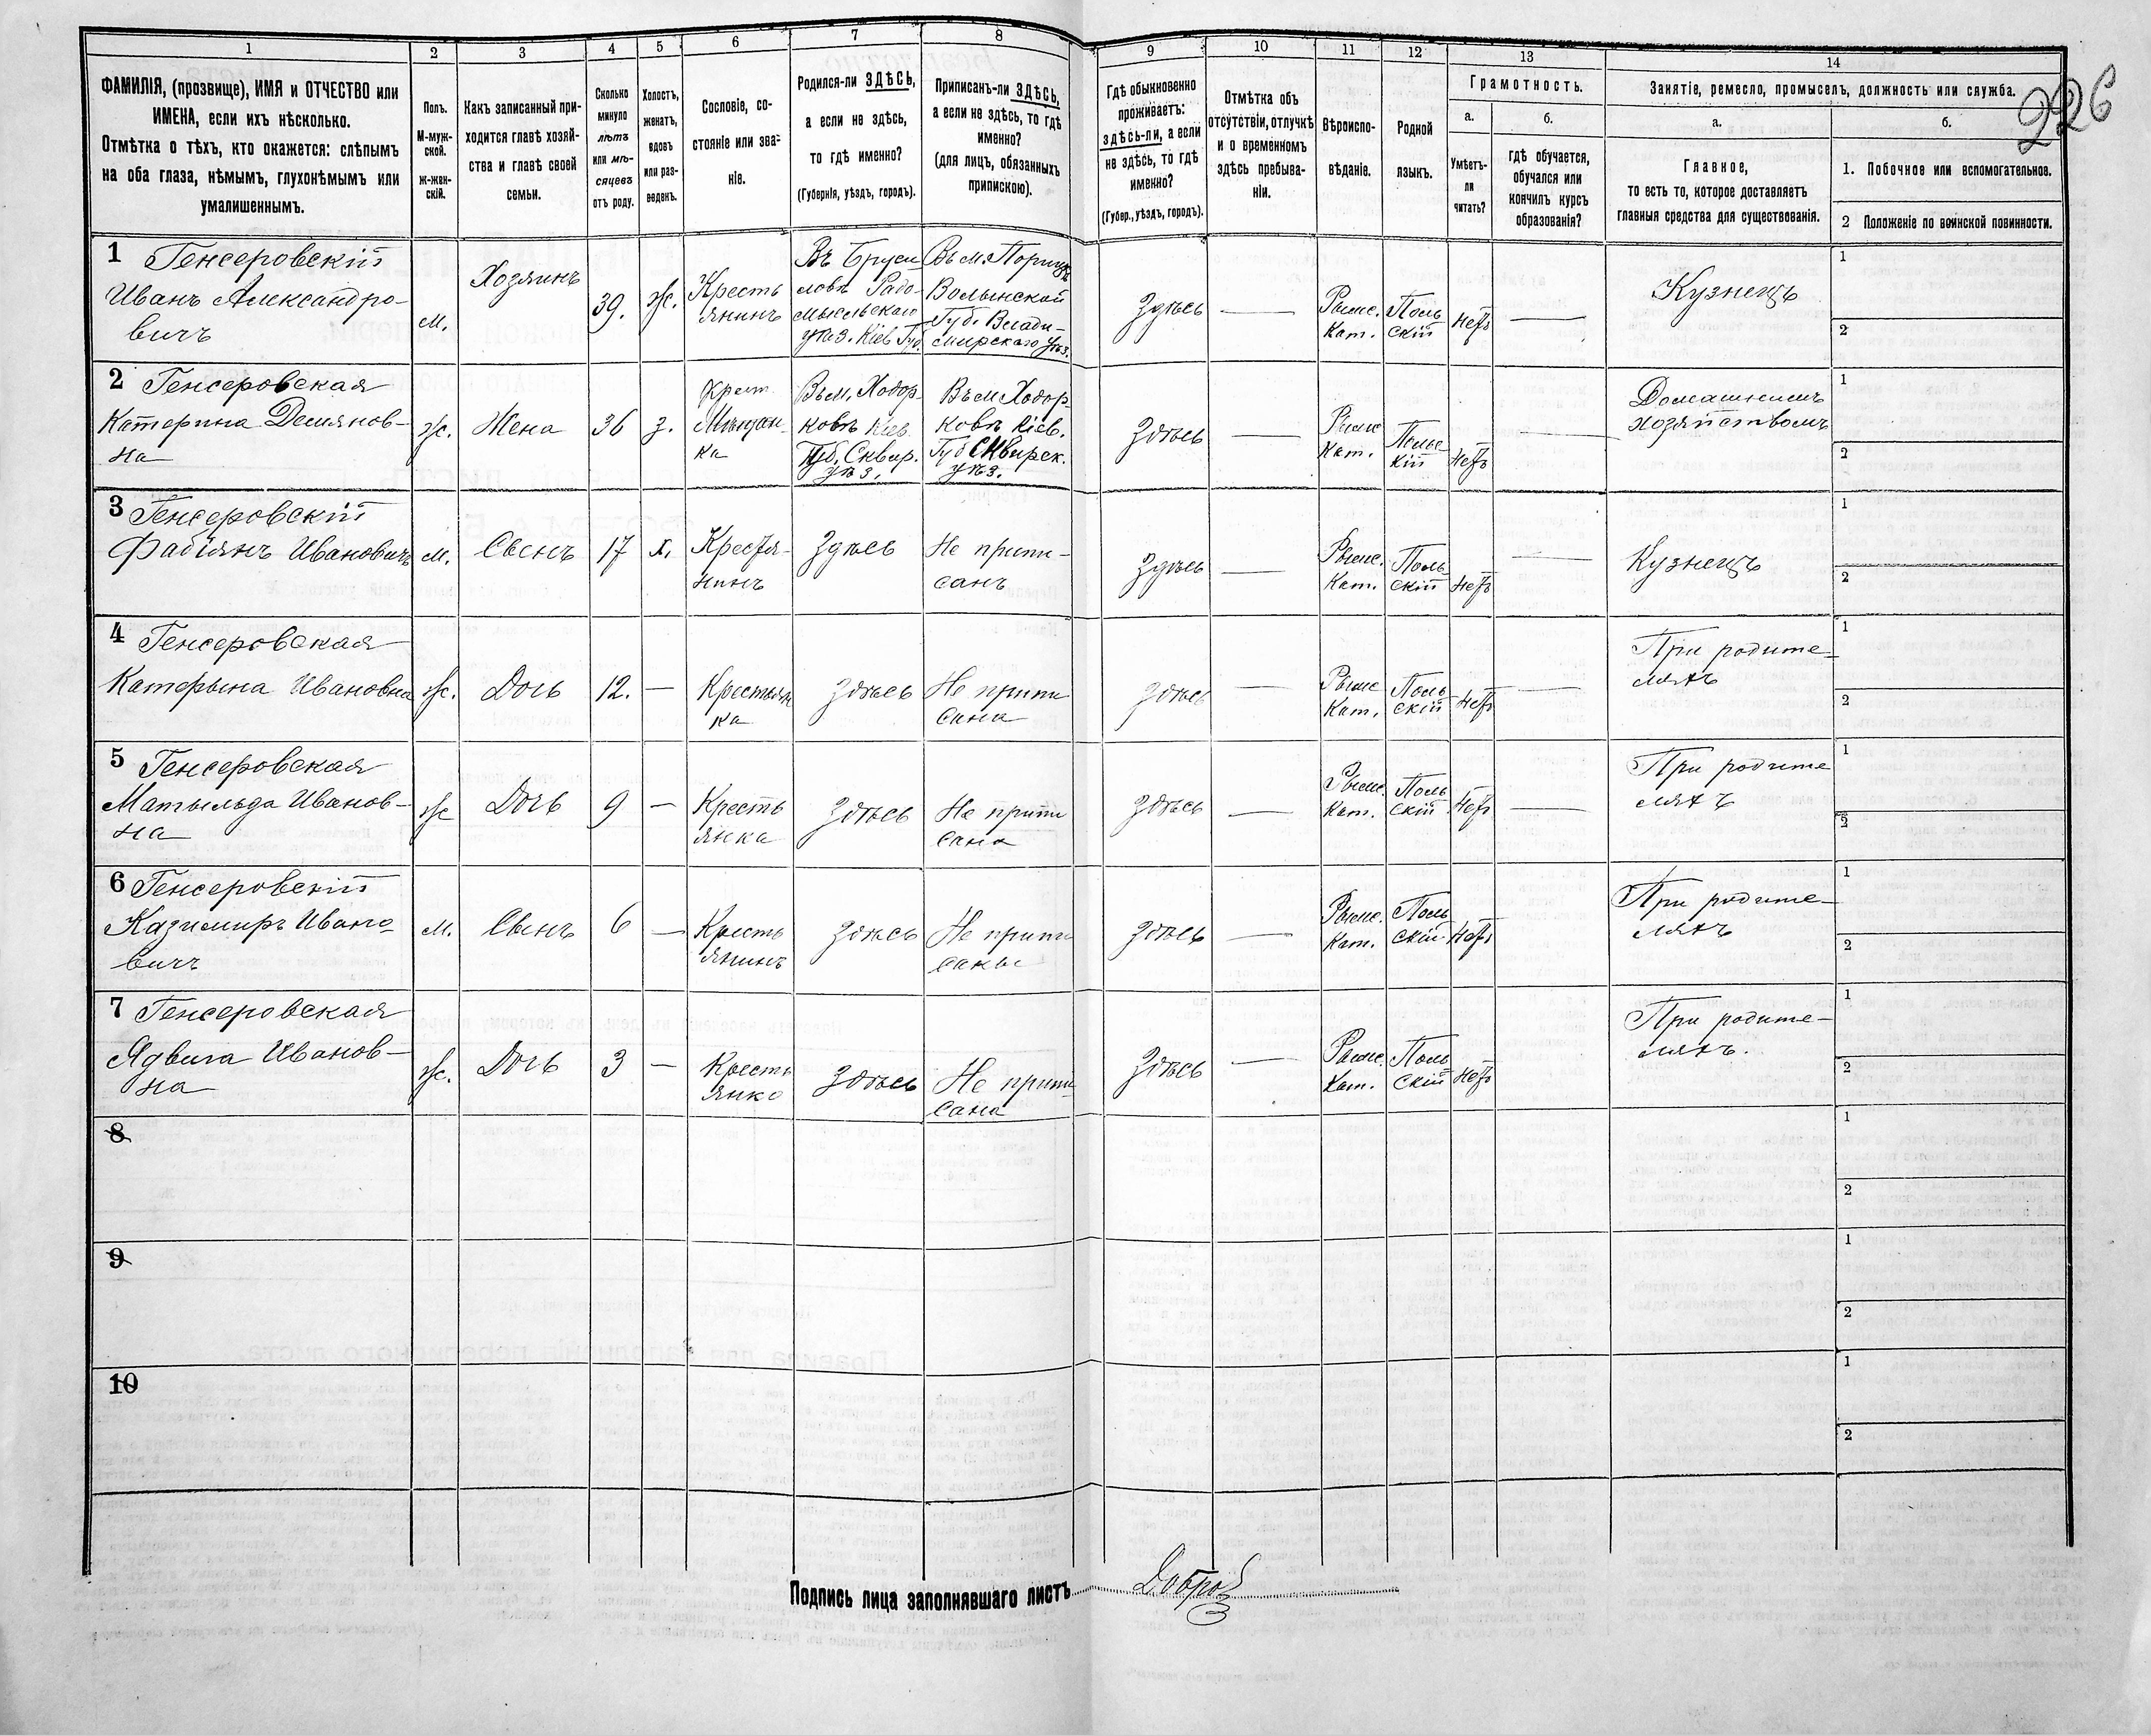 226
1 2 3 4 5 6 7 8 9 10 11 12 13 14
ФАМИЛІЯ, (прозвище), ИМЯ и ОТЧЕСТВО или
ИМЕНА, если ихъ нѣсколько.
Отмѣтка о тѣхъ, кто окажется: слѣпымъ
на оба глаза, нѣмымъ, глухонѣмымъ или
умалишеннымъ.
Полъ.
М-муж-
ской.
ж-жен-
скій.
Какъ записанный при-
ходится главѣ хозяй-
ства и главѣ своей
семьи.
Сколько
минуло
лѣтъ
или мѣ-
сяцевъ
отъ роду.
Холостъ,
женатъ,
вдовъ
или раз-
веденъ.
Сословіе, со-
стояніе или зва-
ніе.
Родился-ли ЗДѢСЬ,
а если не здѣсь,
то гдѣ именно?
(Губернія, уѣздъ, городъ).
Приписанъ-ли ЗДѢСЬ,
а если не здѣсь, то гдѣ
именно?
(для лицъ, обязанныхъ
припискою).
Гдѣ обыкновенно
проживаетъ:
ЗДѢСЬ-ЛИ, а если
не здѣсь, то гдѣ
именно?
(Губер., уѣздъ, городъ).
Отмѣтка объ
отсутствіи, отлучкѣ
и о временномъ
здѣсь пребыва-
ніи.
Вѣроиспо-
вѣданіе.
Родной
языкъ.
Грамотность.
а.
Умѣетъ-
ли
читать?
б.
гдѣ обучается,
обучался или
кончилъ курсъ
образованія?
Занятіе, ремесло, промыселъ, должность или служба.
а.
Главное,
то есть то, которое доставляетъ
главныя средства для существованія.
б.
1. Побочное или вспомогательное.
2 Положеніе по воинской повинности.
1 Генсеровскій
Иванъ Александро-
вичъ
м.
Хозяинъ
39.
ж.
Кресть
янинъ
Въ Бруси
ловѣ Радо-
мысльскаго
уѣз. Кіев Губ.
Въ м. Порицкѣ
Волынской
Губ. Влади-
мирскаго уѣз.
Здѣсь
—
Римс.
Кат.
Поль
скій
Нетъ
—
Кузнецъ
1
2
2 Генсеровская
Катерина Демянов-
на
ж.
Жена
36
з.
Крест.
Мѣщан-
ка
Въ м. Ходор-
ковѣ Кіев.
Губ. Сквир.
уѣз.
Въ м Ходор-
ковѣ Кіев.
Губ Сквирск.
уѣз.
Здѣсь
—
Римс
Кат.
Польс
кій
Нетъ
—
Домашнимъ
хозяйствомъ
1
2
3 Генсеровскій
Фабіянъ Ивановичъ
м.
Сынъ
17
х.
Крестья-
нинъ
Здѣсь
Не припи-
санъ
Здѣсь
—
Римс.
Кат.
Поль
скій
Нетъ
—
Кузнецъ
1
2
4 Генсеровская
Катерына Ивановна
ж.
Дочь
12.
—
Крестьян
ка
Здѣсь
Не припи
сана
Здѣсь
—
Римс
Кат.
Поль
скій
Нетъ
—
При родите-
ляхъ
1
2
5 Генсеровская
Матыльда Иванов-
на
ж
Дочь
9
—
Кресть
янка
Здѣсь
Не припи
сана
Здѣсь
—
Римс.
Кат.
Поль
скій
Нетъ
—
При родите
ляхъ
1
2
6 Генсеровскій
Казимиръ Ивано-
вичъ
м.
Сынъ
6
—
Кресть
янинъ
Здѣсь
Не припи
санъ
Здѣсь
—
Римс.
Кат.
Поль
скій
Нетъ
При родите-
ляхъ
1
2
7 Генсеровская
Ядвига Иванов-
на
ж.
Дочь
3
—
Кресть
янка
Здѣсь
Не припи-
сана
Здѣсь
—
Римс.
Кат.
Поль
скій
Нетъ
При родите-
ляхъ.
1
2
8
1
2
9
1
2
10
1
2
Подпись лица заполнявшаго листъ